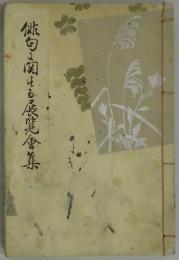 俳句に関する展覧會集